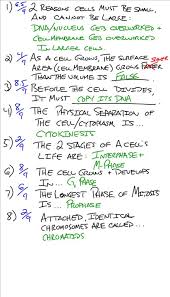 1) 2 REASONS CELLS MUST BE SMALL
AND CANNOT BE LARGE:
DNA/NUCLEUS GETS OVERWORKED +
CELL MEMBRANE GETS OVERWORKED
IN LARGE CELL.
2) AS A CELL GROWS, THE SURFACE
AREA (CELL MEMBRANE) GROWS
THAN THE VOLUME IS FALSE
3) BEFORE THE CELL DIVIDES,
IT MUST COPY ITS DNA
4) THE PHYSICAL SEPARATION OF
THE CELL/CYTOPLASM IS...
CYTOKINESIS
5) THE 2 STAGES OF A CELL'S
LIFE ARE: INTERPHASE +
M-PHASE
6) THE CELL GROWS + DEVELOPS
IN... G, PHASE
7) THE LONGEST PHASE OF MITOSIS
IS... PROPHASE
8) ATTACHED, IDENTICAL
CHROMOSOMES ARE CALLED...
CHROMATIDS